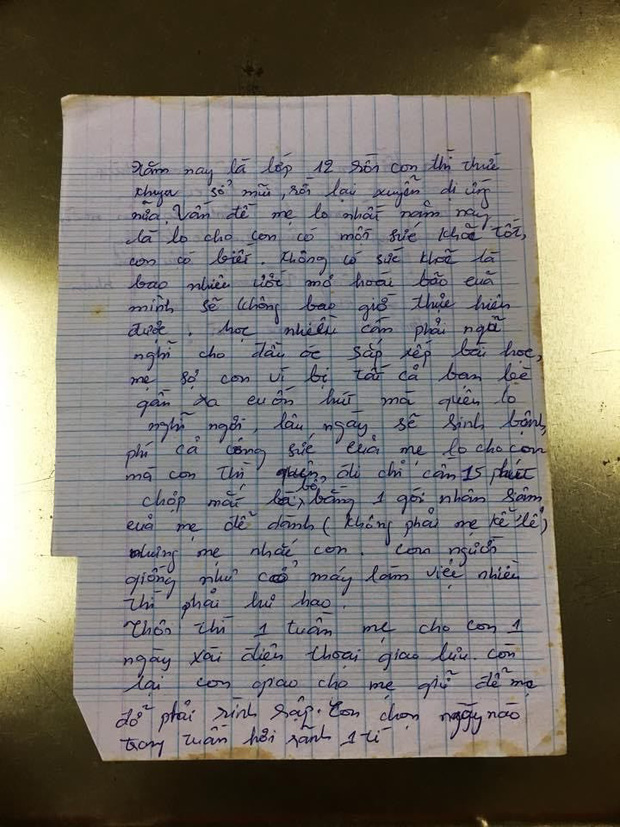 Năm nay là lớp 12 rồi con thì thức
khuya sổ mũi, rồi lại xuyễn dị ứng
nữa. Vấn đề mẹ lo nhất năm nay
là lo cho con có một sức khỏe tốt,
con có biết. Không có sức khỏe là
bao nhiêu ước mơ hoài bão của
mình sẽ không bao giờ thực hiện
được. học nhiều cần phải ngơi
nghĩ cho đầu óc sắp xếp bài học,
mẹ sợ con vì bị tất cả bạn bè
gần xa cuốn hút mà quên lo
nghĩ ngơi, lâu ngày sẽ sinh bệnh,
phí cả công sức của mẹ lo cho con
mà con thì quên, dù chỉ cần 15 phút
chợp mắt bổ bằng 1 gói nhân sâm
của mẹ để dành (không phải mẹ kể lể)
nhưng mẹ nhắc con. con người
giống như cổ máy làm việc nhiều
thì phải hư hao.
Thôi thì 1 tuần mẹ cho con 1
ngày xài điện thoại giao lưu. còn
lại con giao cho mẹ giữ để mẹ
đỡ phải rình rập. Con chọn ngày nào
trong tuần hơi rãnh 1 tí